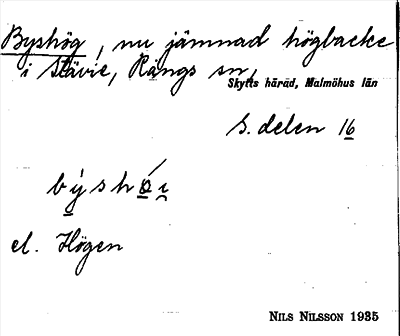 Byshög, nu jämnad högbacke
i Stävie, Rängs sn,
Skytts härad, Malmöhus län
S. delen 16
el. Högen
NILS NILSSON 1935